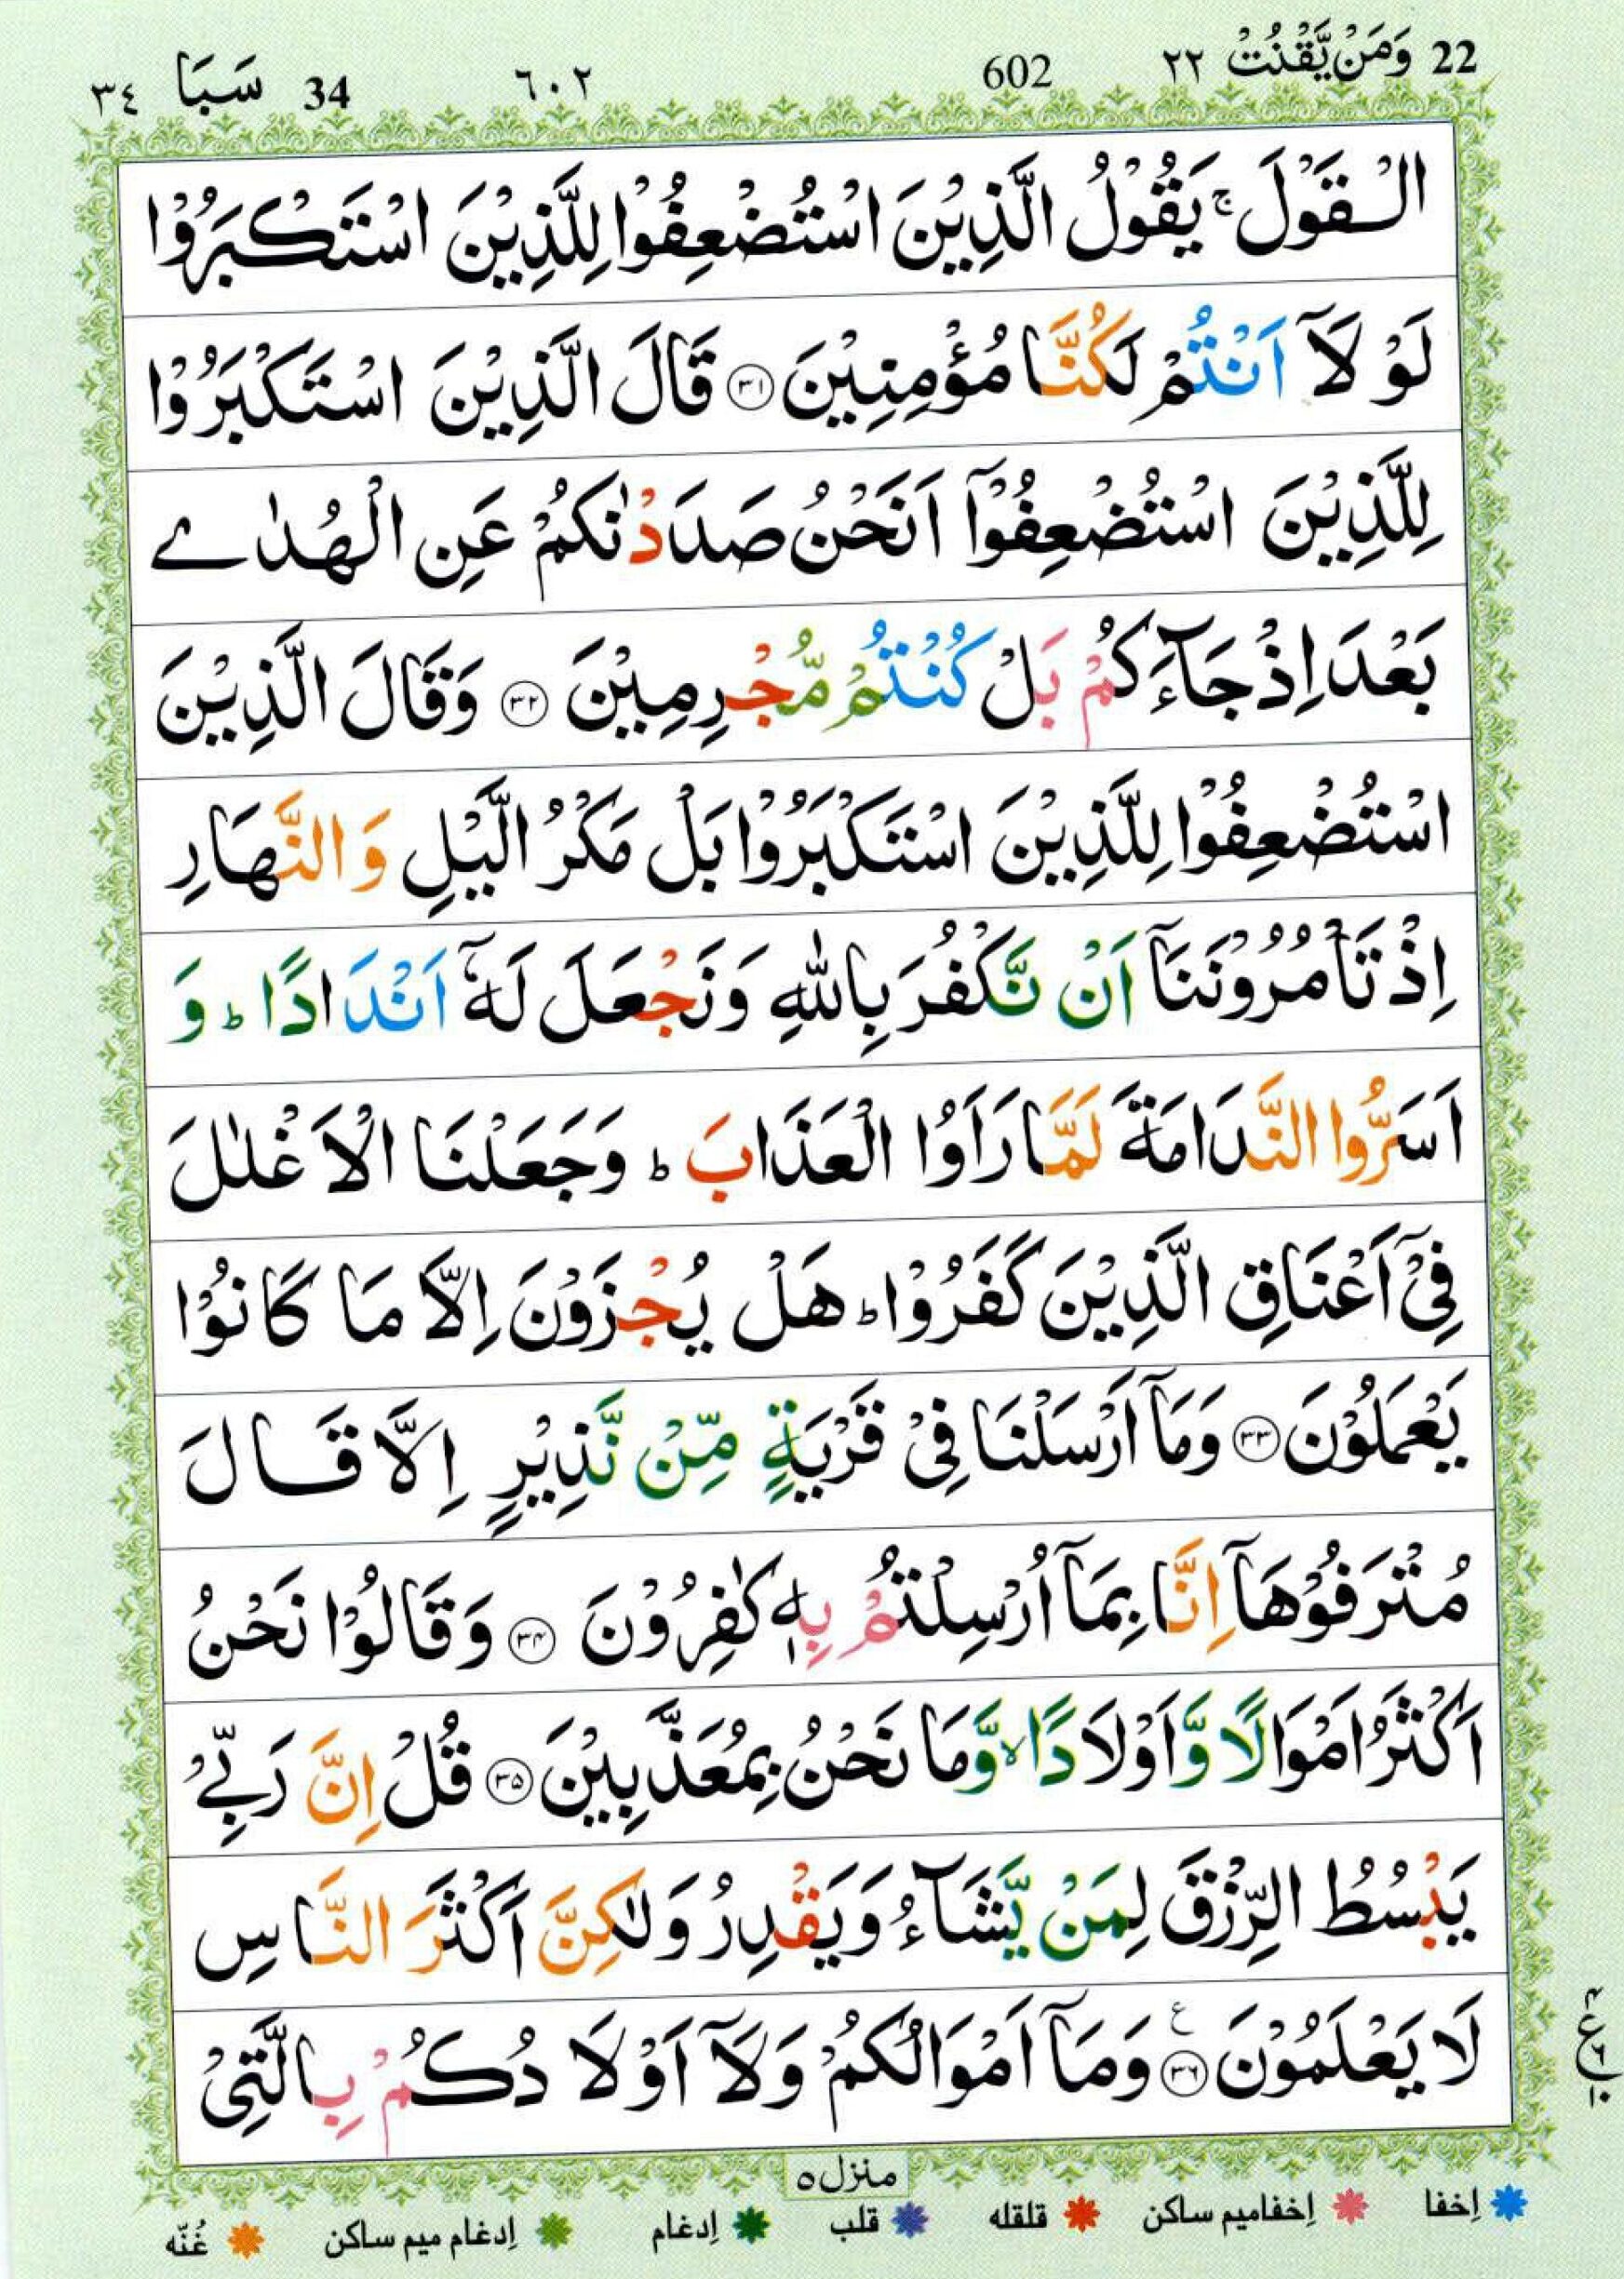 22 وَمَنْ يَّقْنُتْ ٢٢ 602 ٦٠٢ 34 سَبَا ٣٤
الْـقَوْلَ ۚ يَقُوْلُ الَّذِيْنَ اسْتُضْعِفُوْا لِلَّذِيْنَ اسْتَكْبَرُوْا
لَوْ لَاۤ اَنْتُمْ لَكُنَّا مُؤْمِنِيْنَ ۝۳۱ قَالَ الَّذِيْنَ اسْتَكْبَرُوْا
لِلَّذِيْنَ اسْتُضْعِفُوْۤا اَنَحْنُ صَدَدْنٰكُمْ عَنِ الْهُدٰى
بَعْدَ اِذْ جَآءَكُمْ بَلْ كُنْتُمْ مُّجْرِمِيْنَ ۝۳۲ وَقَالَ الَّذِيْنَ
اسْتُضْعِفُوْا لِلَّذِيْنَ اسْتَكْبَرُوْا بَلْ مَكْرُ الَّيْلِ وَ النَّهَارِ
اِذْ تَاْمُرُوْنَنَاۤ اَنْ نَّكْفُرَ بِاللّٰهِ وَنَجْعَلَ لَهٗۤ اَنْدَادًا ؕ وَ
اَسَرُّوا النَّدَامَةَ لَمَّا رَاَوُا الْعَذَابَ ؕ وَجَعَلْنَا الْاَغْلٰلَ
فِيْۤ اَعْنَاقِ الَّذِيْنَ كَفَرُوْا ؕ هَلْ يُجْزَوْنَ اِلَّا مَا كَانُوْا
يَعْمَلُوْنَ ۝۳۳ وَمَاۤ اَرْسَلْنَا فِيْ قَرْيَةٍ مِّنْ نَّذِيْرٍ اِلَّا قَالَ
مُتْرَفُوْهَاۤ اِنَّا بِمَاۤ اُرْسِلْتُمْ بِهٖ كٰفِرُوْنَ ۝۳۴ وَقَالُوْا نَحْنُ
اَكْثَرُ اَمْوَالًا وَّاَوْلَادًا ۙ وَّمَا نَحْنُ بِمُعَذَّبِيْنَ ۝۳۵ قُلْ اِنَّ رَبِّيْ
يَبْسُطُ الرِّزْقَ لِمَنْ يَّشَآءُ وَيَقْدِرُ وَلٰكِنَّ اَكْثَرَ النَّاسِ
لَا يَعْلَمُوْنَ ۝۳۶ وَمَاۤ اَمْوَالُكُمْ وَلَاۤ اَوْلَادُكُمْ بِالَّتِيْ
ع ۴ ۶ ۱۰
منزل ۵
إخفا إخفاميم ساكن قلقله قلب إدغام إدغام ميم ساكن غُنّه